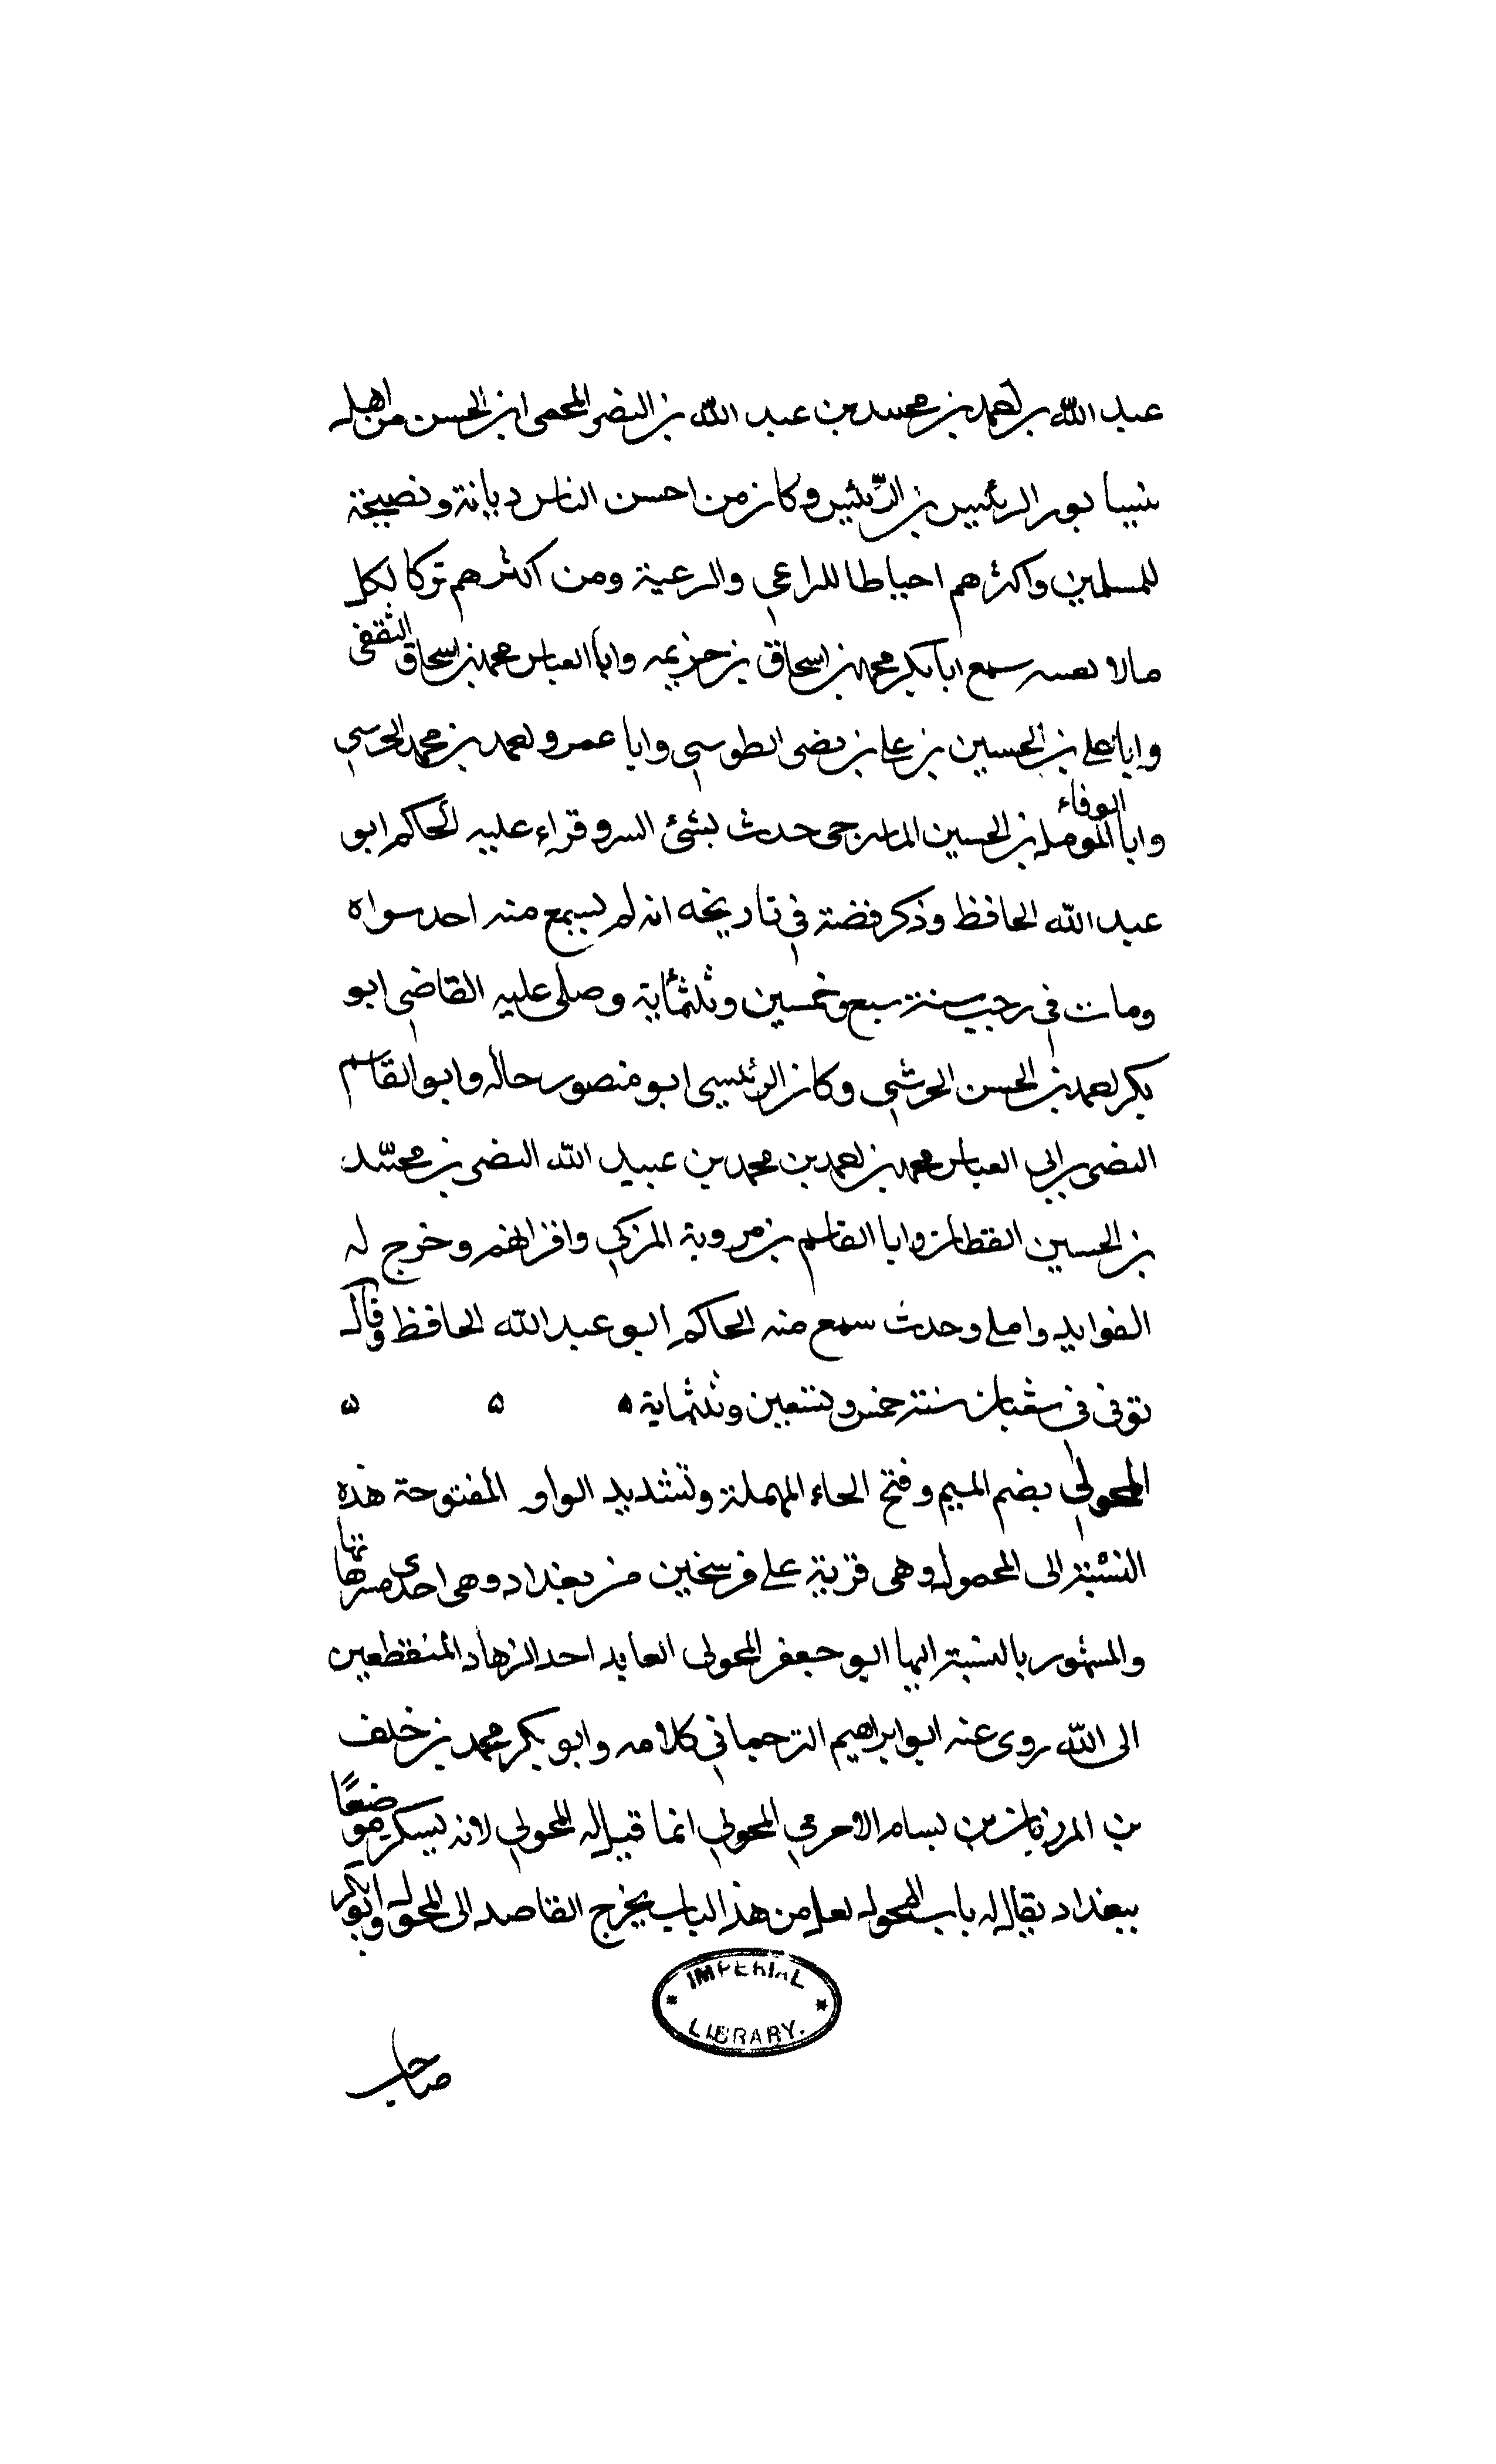 عبد الله بن احمد بن محمد بن عبد الله بن النضر المحمى ابن الحسن من اهل
نيسابور الرئيس بن الرئيس وكان من احسن الناس ديانة ونصيحة
للمسلمين واكثرهم احياطا للراعي والرعية ومن اكثرهم تركا لكل
مالا سمع ابا بكر محمد بن اسحاق بن خزيمه وابا العباس محمد بن اسحاق الثقفى
وابا على بن الحسين بن على بن نضى الطوسي وابا عمرو احمد بن محمد الحرسي
وابا الوفاء المومل بن الحسين حدث بشئ السر وقراء عليه الحاكم ابو
عبد الله الحافظ وذكر فضته في تاريخه انه لم يسمع منه احد سواه
ومات في رجب سنة سبع وخمسين وثلثمأية وصلى عليه القاضي ابو
بكر احمد بن الحسن الحرشي وكان الرئيسي ابو منصور حاله وابو القاسم
النضى بن ابى العباس محمد بن احمد بن محمد بن عبيد الله النضى بن محمد
بن الحسين القطان وابا القاسم بن مروية المزكي واقرانهم وخرج له
الفوايد واملى وحدث سمع منه الحاكم ابو عبد الله الحافظ وقال
توفى فى شعبان سنة خمس وتسعين وثلثماية ه ه ه
المحولي بضم الميم وفتح الحاء المهملة وتشديد الواو المفتوحة هذه
النسبة الى المحول وهى قرية على فرسخين من بغداد وهى احدى متنزهاتها
والمشهور بالنسبة اليها ابو جعفر المحولى العابد احد الزهاد المنقطعين
الى الله روى عنه ابو ابراهيم الترجماني كلامه وابو بكر محمد بن خلف
بن المرزبان بن بسام الاحرمي المحولي انما قيل له المحولي لانه يسكن موضعًا
ببغداد يقال له باب المحول لعل من هذ الباب يخرج القاصد الى المحول وابو بكر
IMPERIAL
LIBRARY.
صاحب